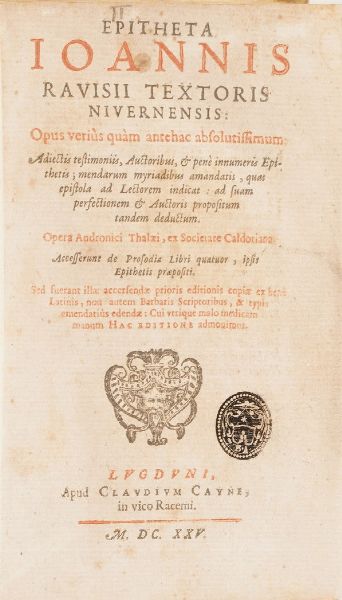 EPITHETA
IOANNIS
RAVISII TEXTORIS
NIVERNENSIS:
Opus veriùs quàm antehac absolutissimum:
Adiectis testimoniis, Auctoribus, & penè innumeris Epi-
thetis; mendarum myriadibus amandatis, quas
epistola ad Lectorem indicat: ad suam
perfectionem & Auctoris propositum
tandem deductum.
Opera Andronici Thalæi, ex Societate Caldoriana.
Accesserunt de Prosodia Libri quatuor, ipsis
Epithetis præpositi.
Sed fuerant illæ accersendæ prioris editionis copiæ ex bene
Latinis, non autem Barbaris Scriptoribus, & typis
emendatiùs edendæ: Cui vtrique malo medicam
manum HAC EDITIONE admouimus.
LVGDVNI,
Apud CLAVDIVM CAYNE,
in vico Racemi.
M. DC. XXV.